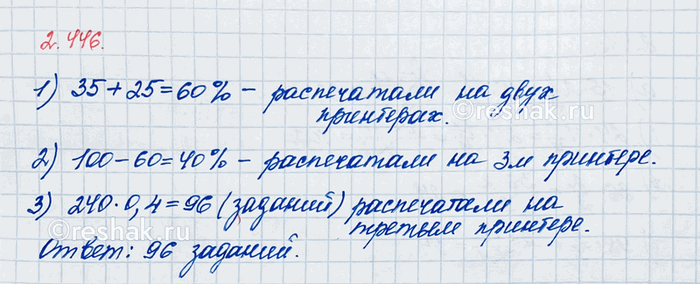 2.446.
1) 35 + 25 = 60% – распечатали на двух
принтерах.
2) 100 – 60 = 40% – распечатали на 3м принтере.
3) 240 · 0,4 = 96 (заданий) распечатали на
третьем принтере.
Ответ: 96 заданий.
©reshak.ru